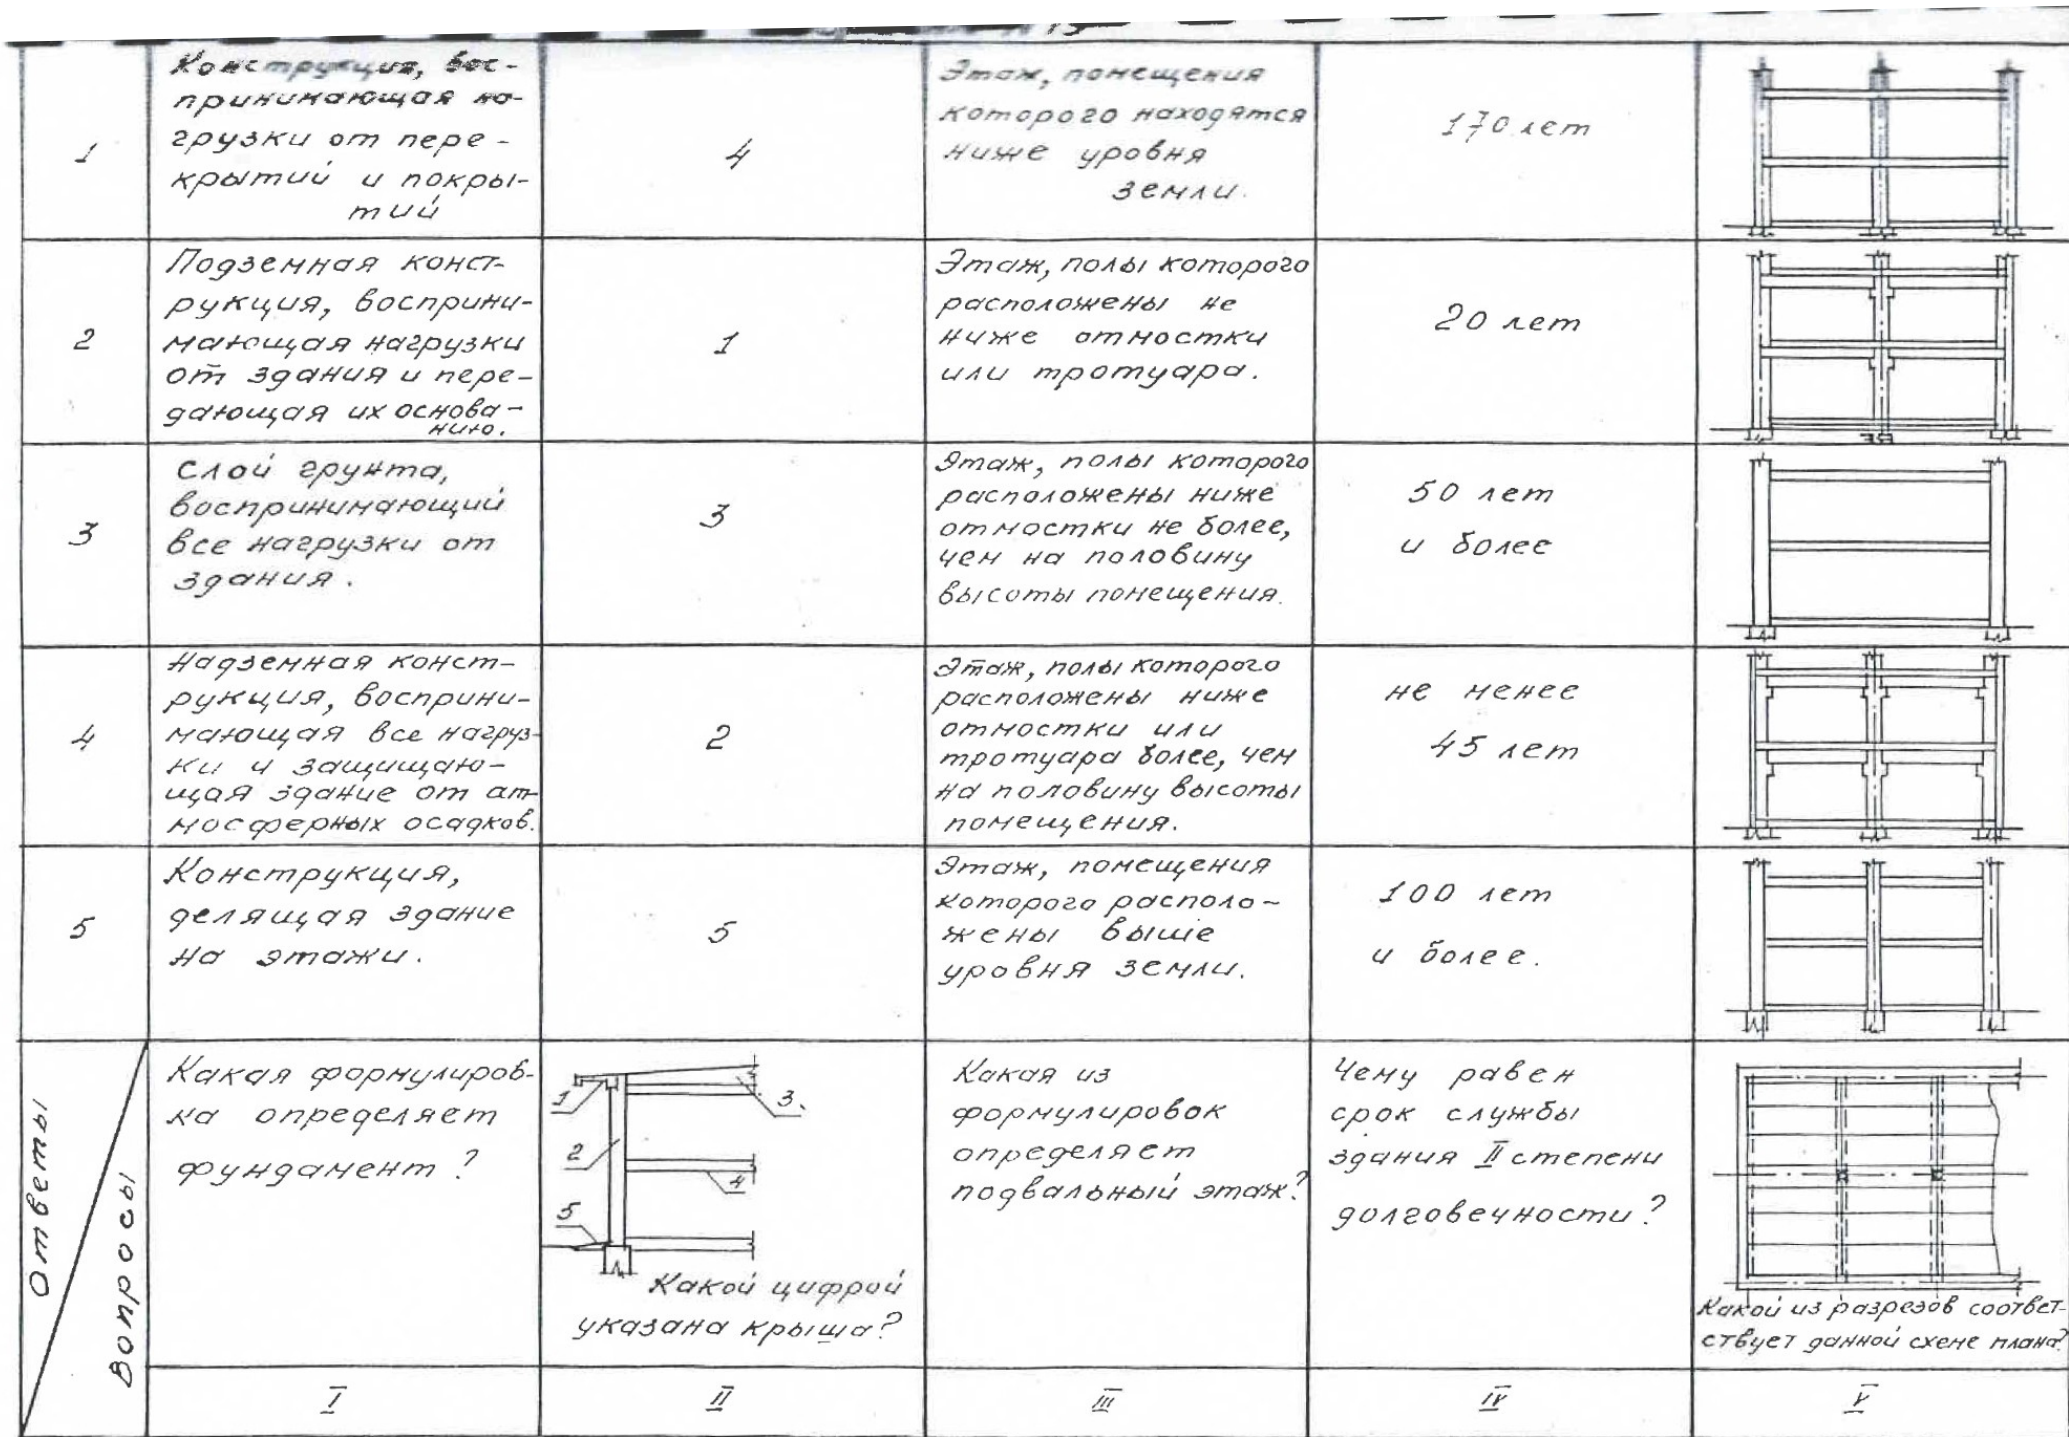 N 13
1
Конструкция, вос-
принимающая на-
грузки от пере-
крытий и покры-
тий
4
Этаж, помещения
которого находятся
ниже уровня
земли.
170 лет
2
Подземная конст-
рукция, восприни-
мающая нагрузки
от здания и пере-
дающая их основа-
нию.
1
Этаж, полы которого
расположены не
ниже отмостки
или тротуара.
20 лет
3
Слой грунта,
воспринимающий
все нагрузки от
здания.
3
Этаж, полы которого
расположены ниже
отмостки не более,
чем на половину
высоты помещения.
50 лет
и более
4
Надземная конст-
рукция, восприни-
мающая все нагруз-
ки и защищаю-
щая здание от ат-
мосферных осадков.
2
Этаж, полы которого
расположены ниже
отмостки или
тротуара более, чем
на половину высоты
помещения.
не менее
45 лет
5
Конструкция,
делящая здание
на этажи.
5
Этаж, помещения
которого располо-
жены выше
уровня земли.
100 лет
и более.
Ответы
Вопросы
Какая формулиров-
ка определяет
фундамент?
1
3.
2
4
5
Какой цифрой
указана крыша?
Какая из
формулировок
определяет
подвальный этаж?
Чему равен
срок службы
здания II степени
долговечности?
Какой из разрезов соответ-
ствует данной схеме плана?
I
II
III
IV
V